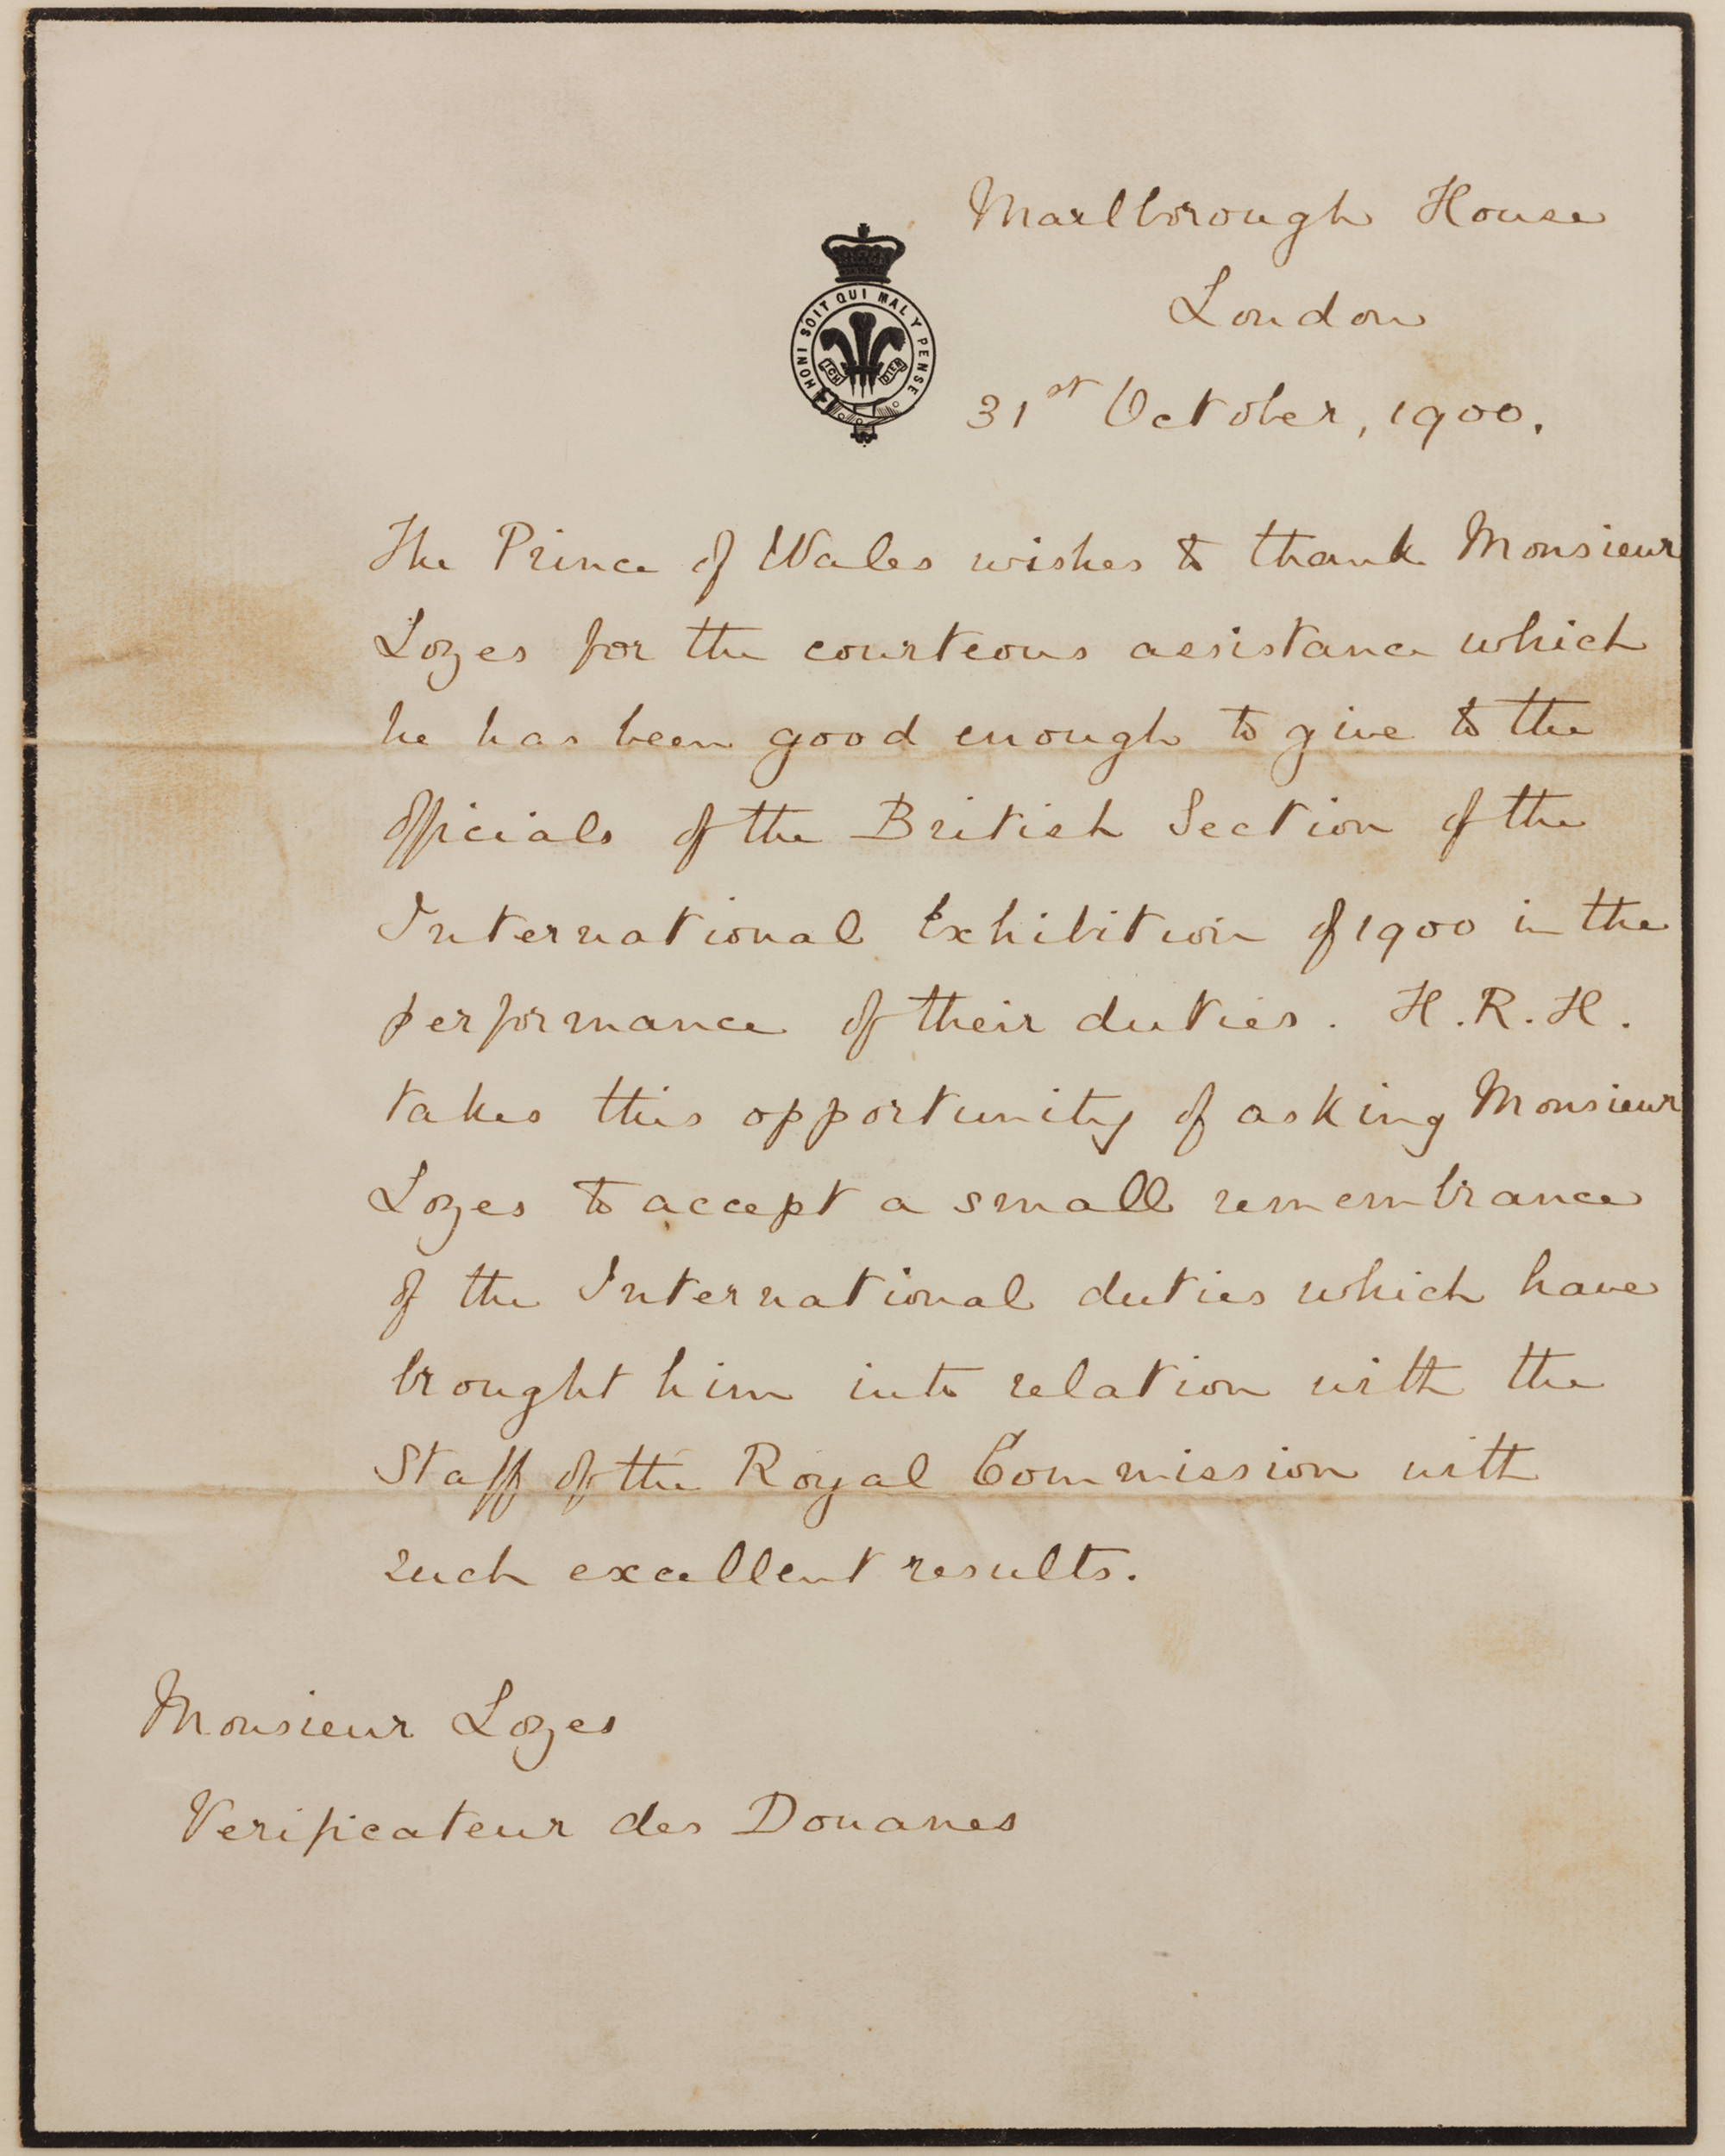 Marlborough House
London
31st October, 1900.
HONI SOIT QUI MAL Y PENSE
ICH DIEN
The Prince of Wales wishes to thank Monsieur
Lozes for the courteous assistance which
he has been good enough to give to the
officials of the British Section of the
International Exhibition of 1900 in the
performance of their duties. H.R.H.
takes this opportunity of asking Monsieur
Lozes to accept a small remembrance
of the International duties which have
brought him into relation with the
Staff of the Royal Commission with
such excellent results.
Monsieur Lozes
Verificateur des Douanes